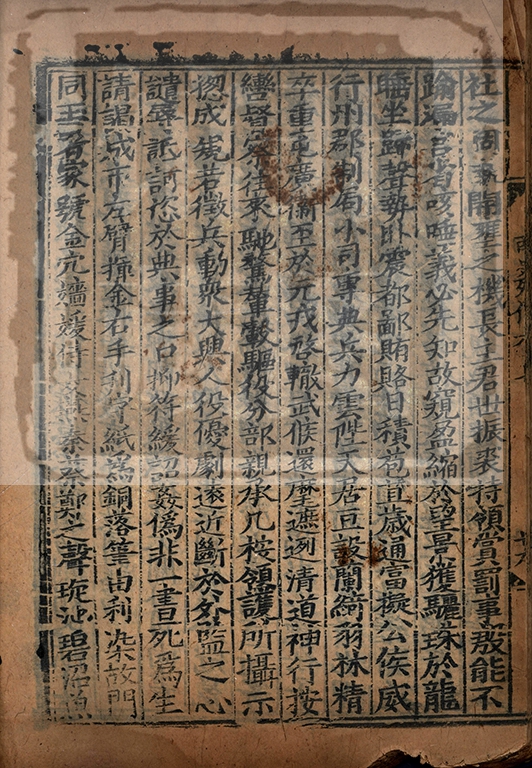 社之固執開壅之機長主君世振裘持領賞罰事殷能不
踰漏宮省咳唾義必先知故窺盈縮於望景獲驪珠於龍
睡坐歸聲勢臥震都鄙賄賂日積苞苴歲通富擬公侯威
行州郡制局小司專典兵力雲陛天居亘設蘭綺羽林精
卒重屯廣衛至於元戎啓轍武候還麾遮迾清道神行按
轡督察往來馳騖輦轂驅役分部親承几桉領護所攝示
揔成規若徵兵動衆大興人役優劇遠近斷於外監之心
譴辱詆訶恣於典事之口抑符緩詔姦僞非一書死爲生
請謁成市左臂揮金右手刊字紙爲銅落筆由利染故門
同玉署家號金穴嬙媛侍兒燕秦蔡鄭之聲琁池碧沼魚